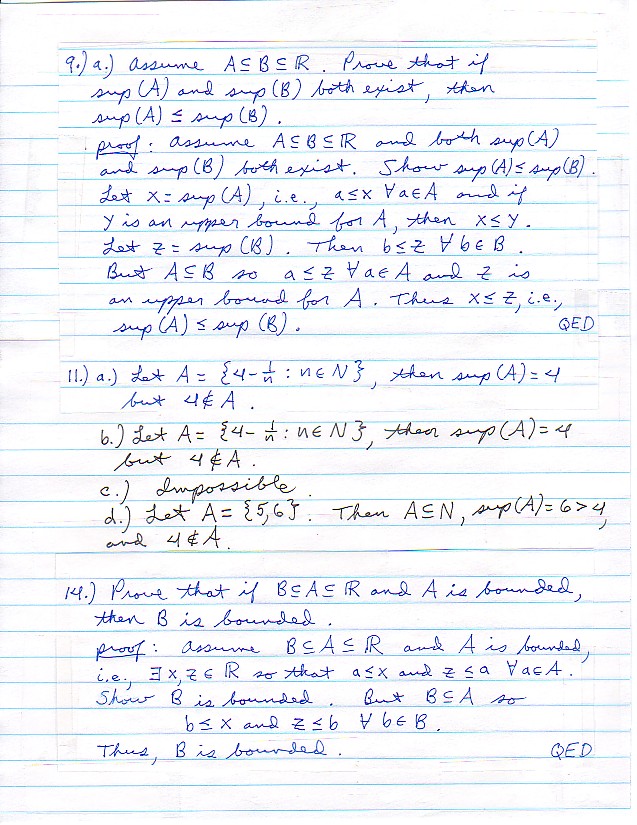 9.) a.) Assume A⊆B⊆ℝ. Prove that if
sup(A) and sup(B) both exist, then
sup(A) ≤ sup(B).
proof: Assume A⊆B⊆ℝ and both sup(A)
and sup(B) both exist. Show sup(A)≤sup(B).
Let x = sup(A), i.e., a≤x ∀a∈A and if
y is an upper bound for A, then x≤y.
Let z = sup(B). Then b≤z ∀b∈B.
But A⊆B so a≤z ∀a∈A and z is
an upper bound for A. Thus x≤z, i.e.,
sup(A) ≤ sup(B). QED
11.) a.) Let A = {4-1/n : n∈N}, then sup(A)=4
but 4∉A.
b.) Let A = {4-1/n : n∈N}, then sup(A)=4
but 4∉A.
c.) Impossible.
d.) Let A = {5,6}. Then A⊆N, sup(A)=6>4,
and 4∉A.
14.) Prove that if B⊆A⊆ℝ and A is bounded,
then B is bounded.
proof: Assume B⊆A⊆ℝ and A is bounded,
i.e., ∃x,z∈ℝ so that a≤x and z≤a ∀a∈A.
Show B is bounded. But B⊆A so
b≤x and z≤b ∀b∈B.
Thus, B is bounded. QED